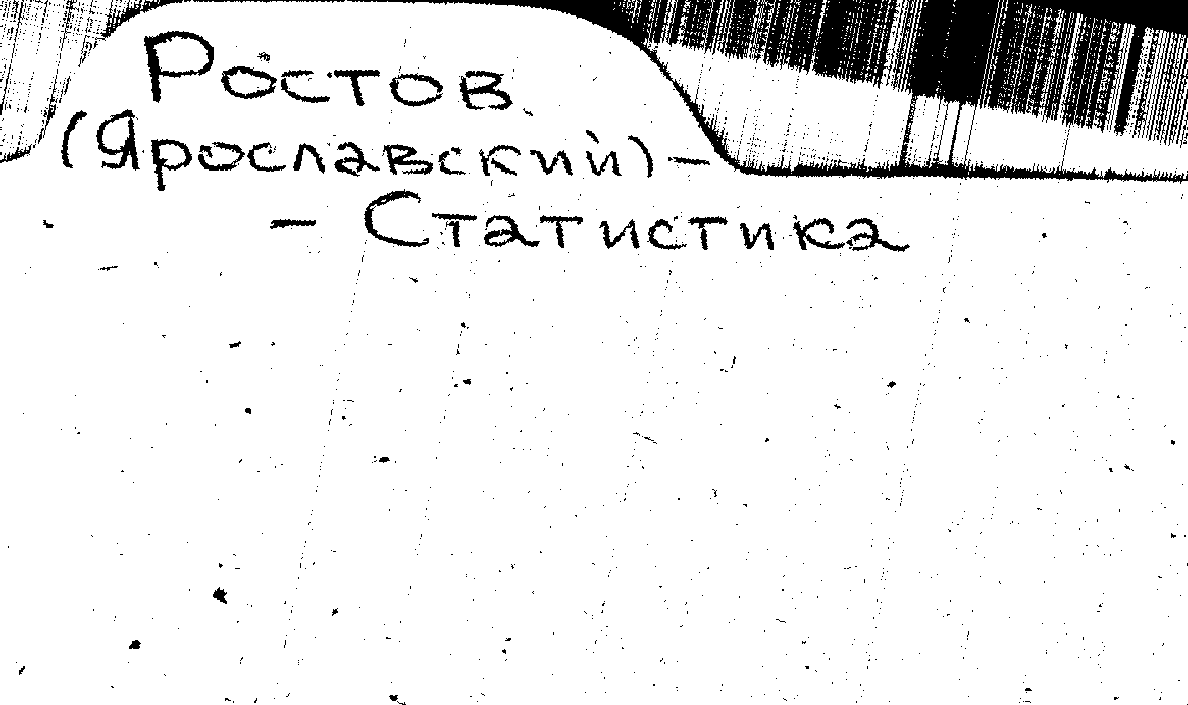 Ростов
(Ярославский) –
– Статистика